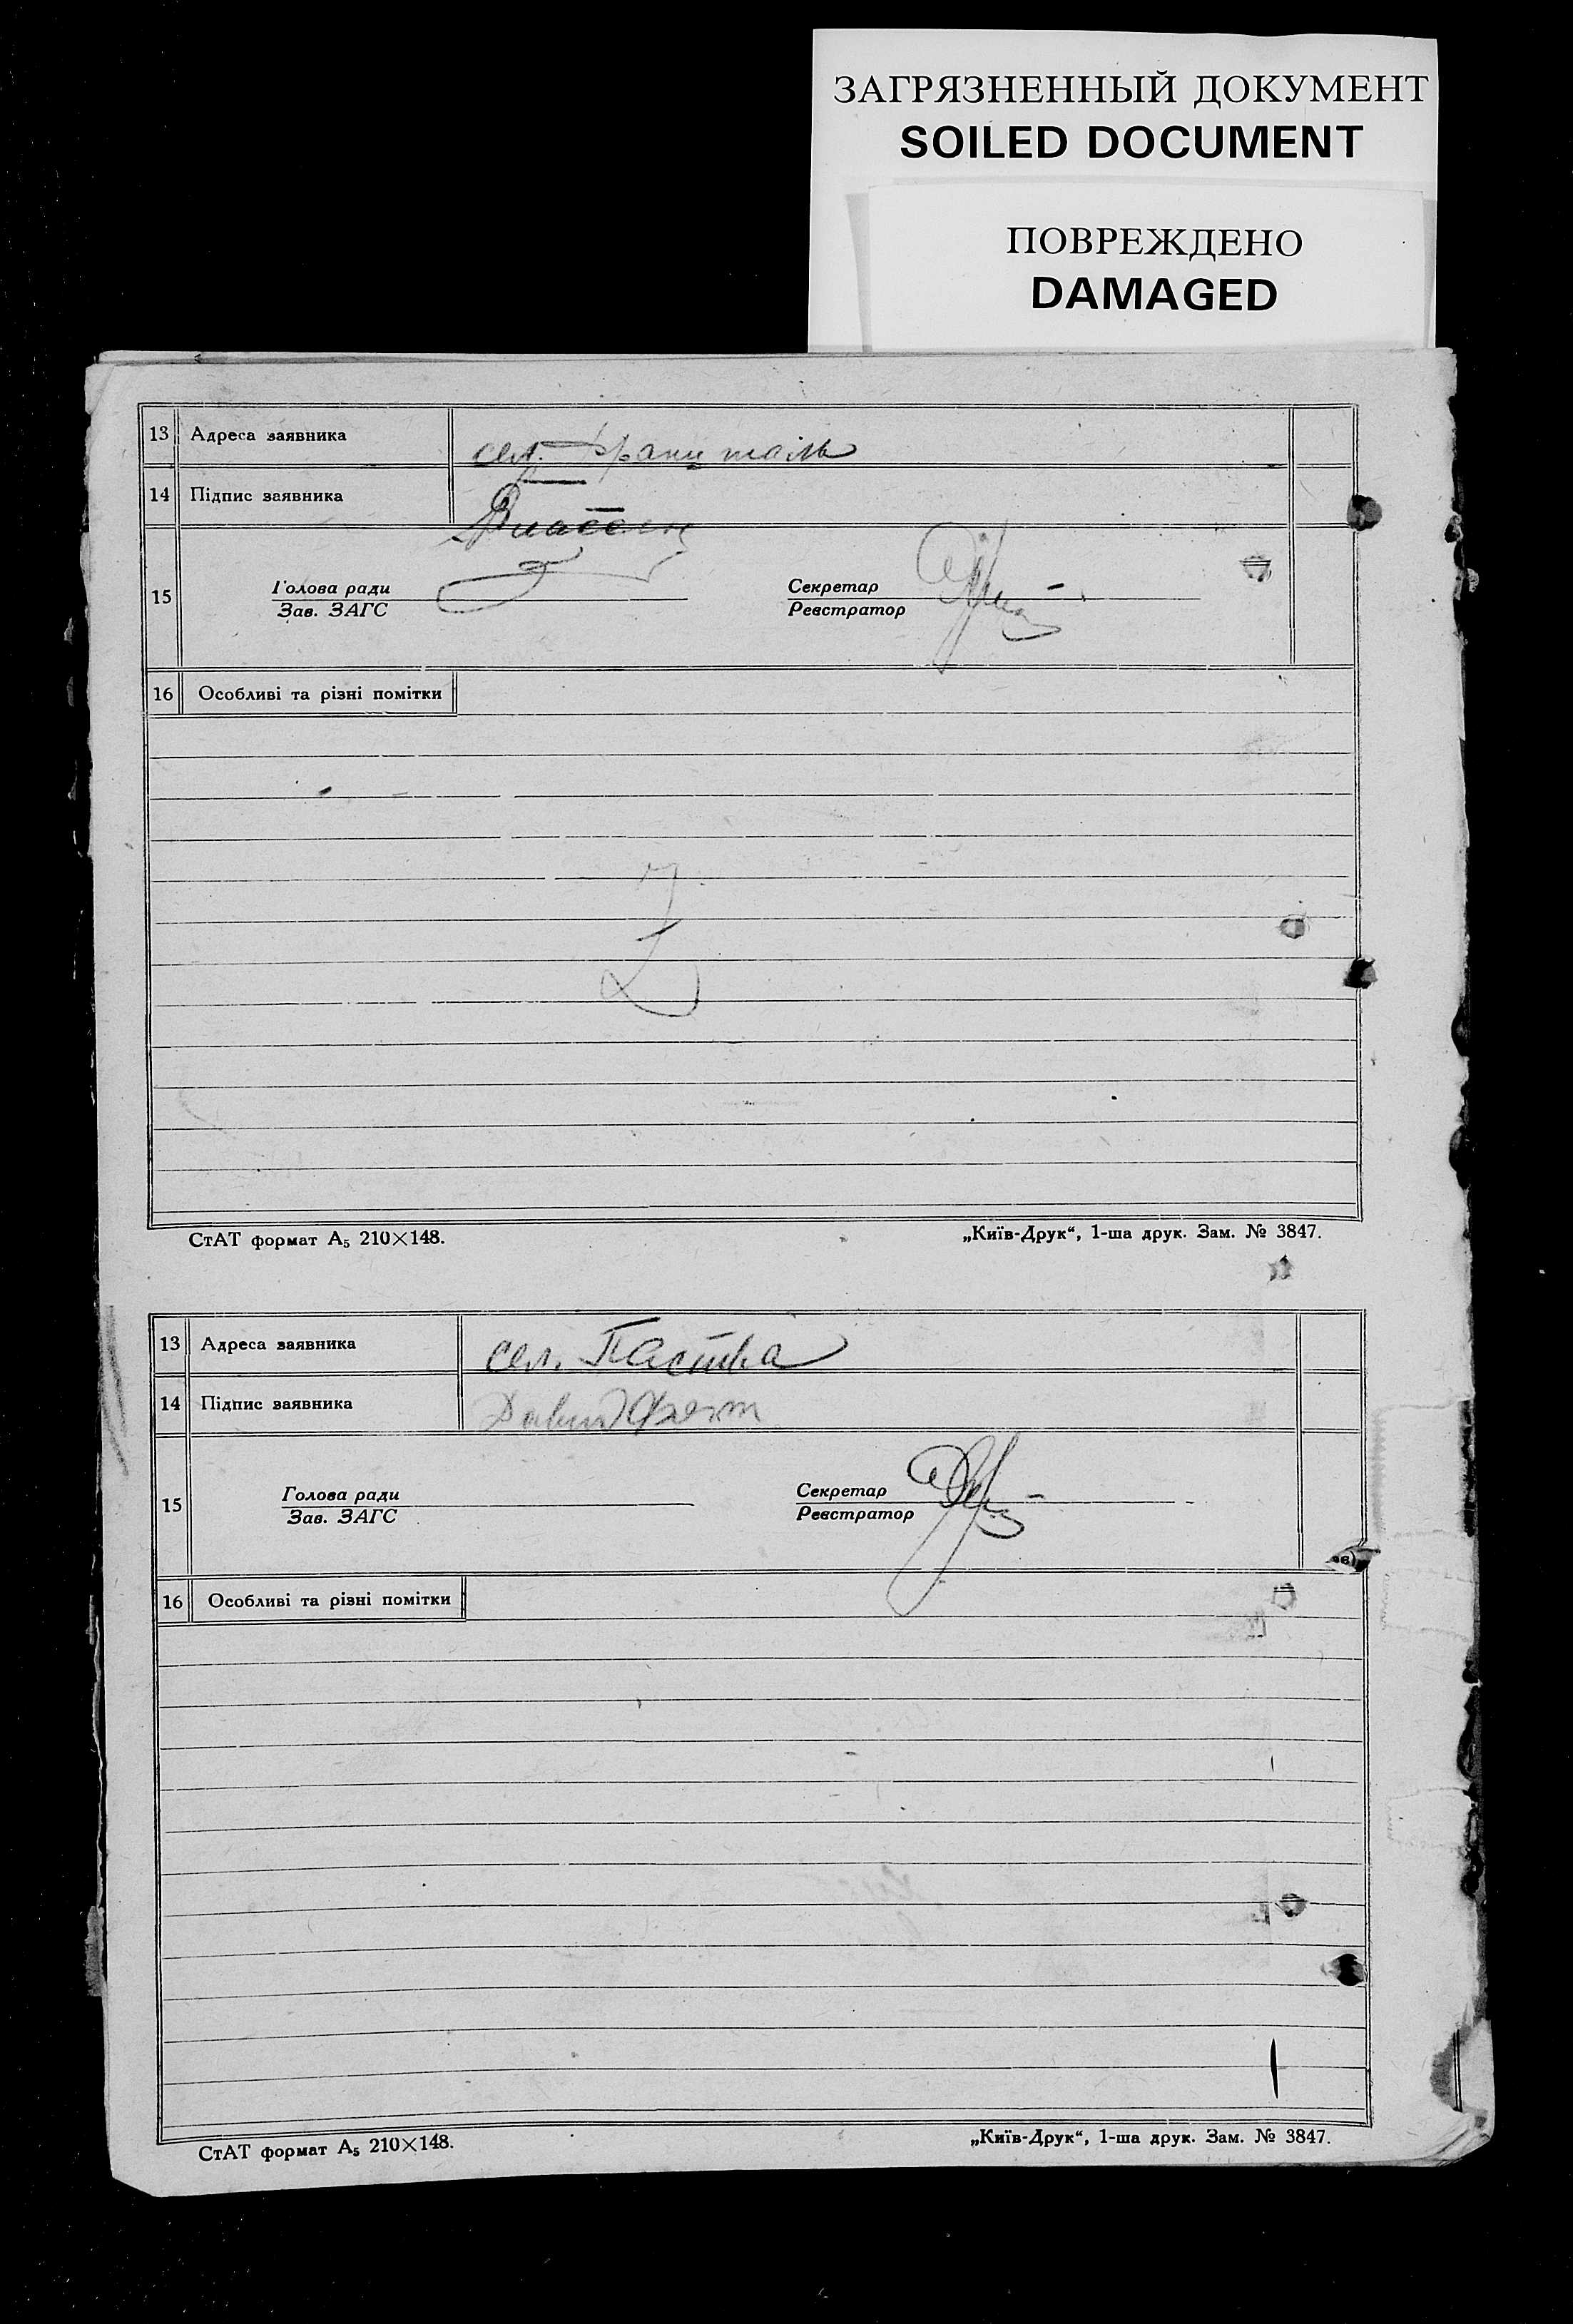 ЗАГРЯЗНЕННЫЙ ДОКУМЕНТ
SOILED DOCUMENT
ПОВРЕЖДЕНО
DAMAGED
13 Адреса заявника сел. Францталь
14 Підпис заявника
15 Голова ради Секретар
Зав. ЗАГС Реєстратор
16 Особливі та різні помітки
СтАТ формат А₅ 210×148. „Київ-Друк“, 1-ша друк. Зам. № 3847.
13 Адреса заявника сел. Паства
14 Підпис заявника Давид
15 Голова ради Секретар
Зав. ЗАГС Реєстратор
16 Особливі та різні помітки
СтАТ формат А₅ 210×148. „Київ-Друк“, 1-ша друк. Зам. № 3847.